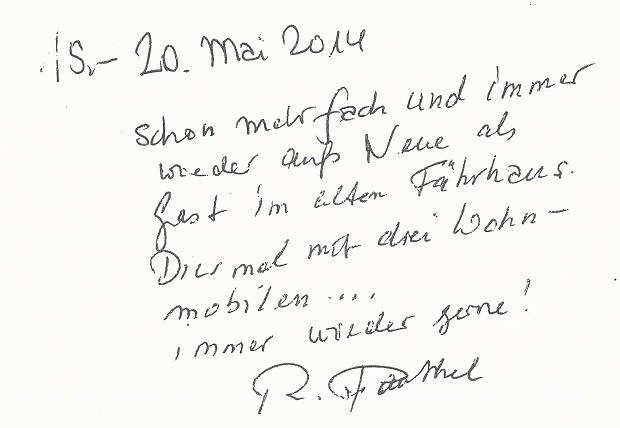 15.- 20. Mai 2014
schon mehrfach und immer
wieder aufs Neue als
Gast im alten Fährhaus.
Diesmal mit drei Wohn-
mobilen ....
immer wieder gerne!
R.